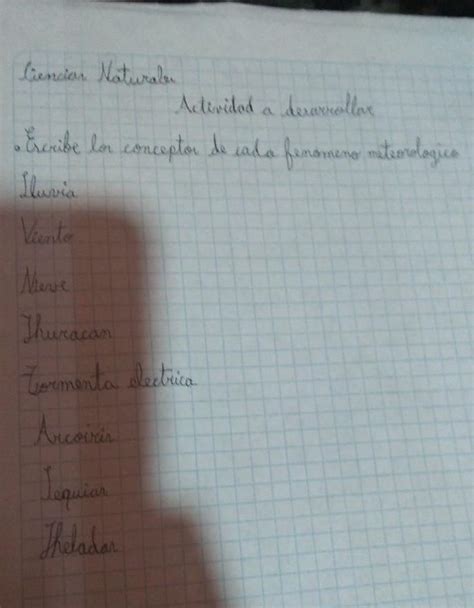 Ciencias Naturales
Actividad a desarrollar
. Escribe los conceptos de cada fenomeno meteorologico
Lluvia
Viento
Nieve
Huracan
Tormenta electrica
Arcoiris
Sequias
Heladas